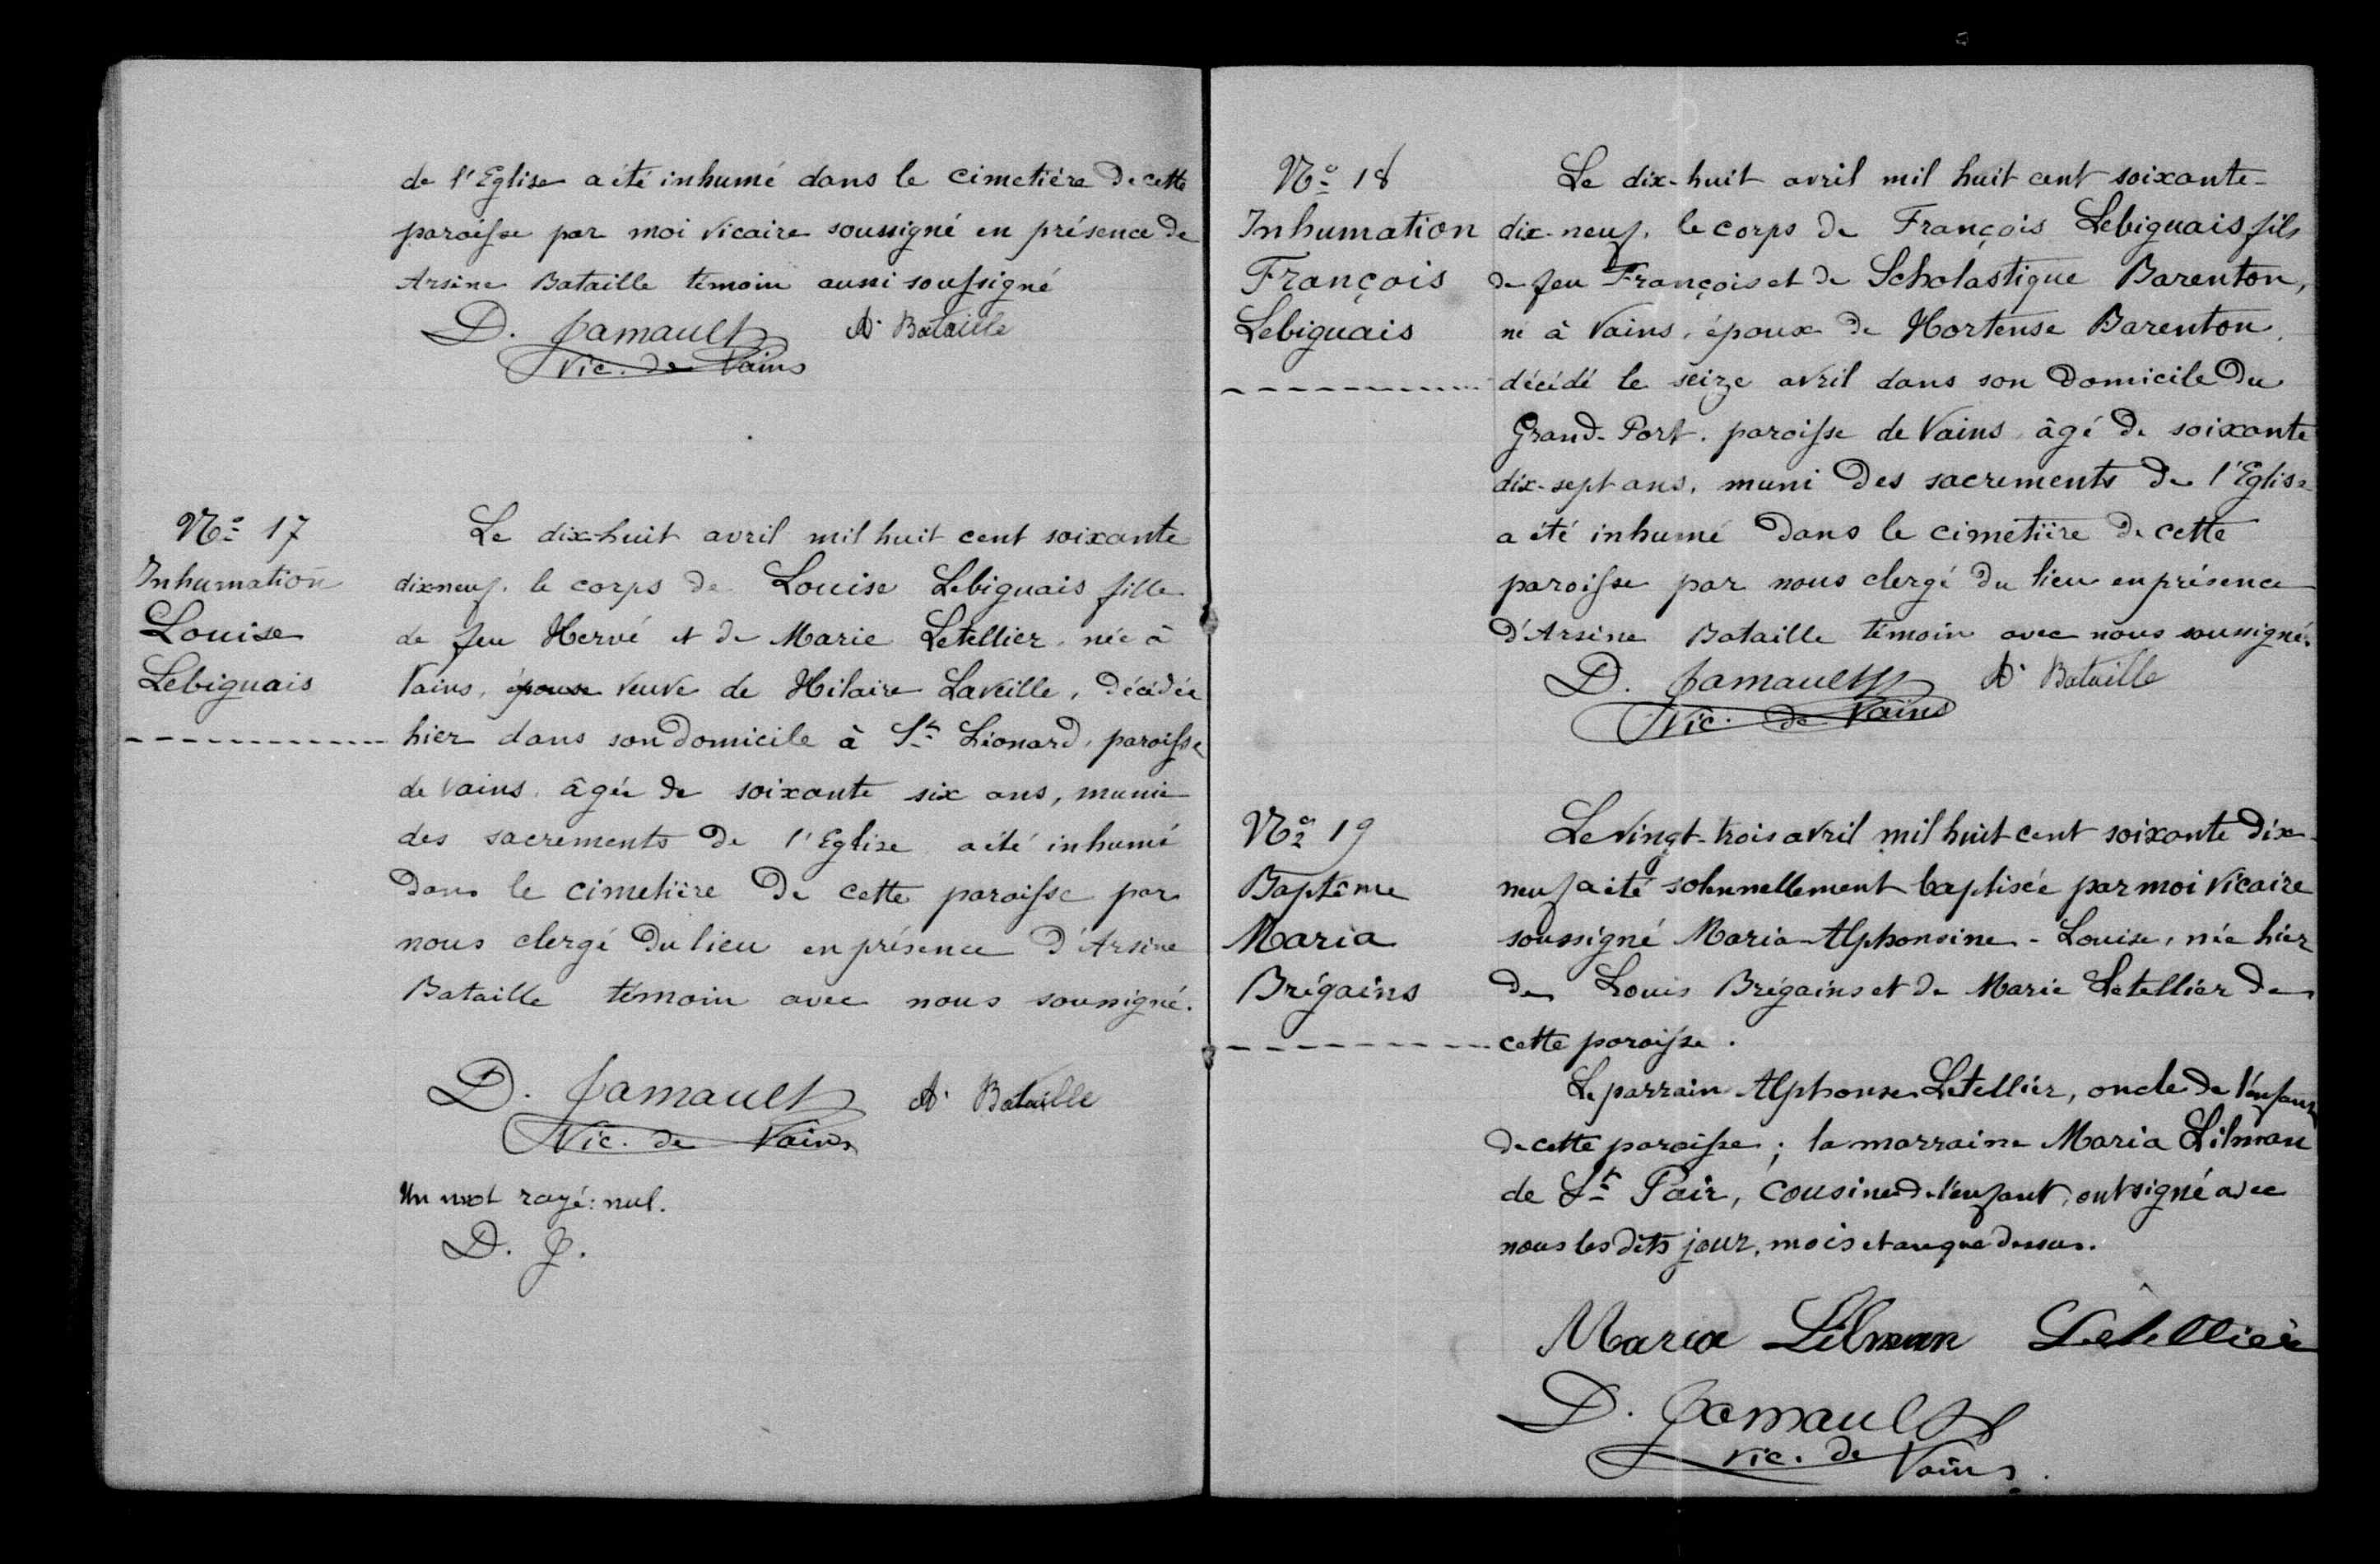 de l'Eglise a été inhumé dans le cimetière de cette
paroisse par moi vicaire soussigné en présence de
Arsène Bataille témoin aussi soussigné
D. Jamault A. Bataille
Vic. de Vains
No 17
Inhumation
Louise
Lebiguais
Le dix-huit avril mil huit cent soixante
dix neuf. le corps de Louise Lebiguais fille
de feu Hervé et de Marie Letellier, née à
Vains, épouse veuve de Hilaire Laveille, décédée
hier dans son domicile à St Léonard, paroisse
de Vains âgée de soixante six ans, munie
des sacrements de l'Eglise a été inhumé
dans le cimetière de cette paroisse par
nous clergé du lieu en présence d'Arsène
Bataille témoin avec nous soussigné.
D. Jamault A. Bataille
Vic. de Vains
Un mot rayé: nul.
D. J.
No 18
Inhumation
François
Lebiguais
Le dix-huit avril mil huit cent soixante-
dix-neuf. le corps de François Lebiguais fils
de feu François et de Scholastique Barenton,
né à Vains, époux de Hortense Barenton,
décédé le seize avril dans son domicile du
Grand-Port. paroisse de Vains âgé de soixante
dix-sept ans, muni des sacrements de l'Eglise
a été inhumé dans le cimetière de cette
paroisse par nous clergé du lieu en présence
d'Arsène Bataille témoin avec nous soussigné.
D. Jamault A. Bataille
Vic. de Vains
No 19
Baptême
Maria
Brégains
Le vingt-trois avril mil huit cent soixante dix-
neuf a été solennellement baptisée par moi vicaire
soussigné Maria-Alphonsine-Louise, née hier
de Louis Brégains et de Marie Letellier de
cette paroisse.
Le parrain Alphonse Letellier, oncle de l'enfant
de cette paroisse; la marraine Maria Lilman
de St Pair, cousine de l'enfant, ont signé avec
nous les dits jour, mois et an que dessus.
Maria Lilman Letellier
D. Jamault
vic. de Vains.